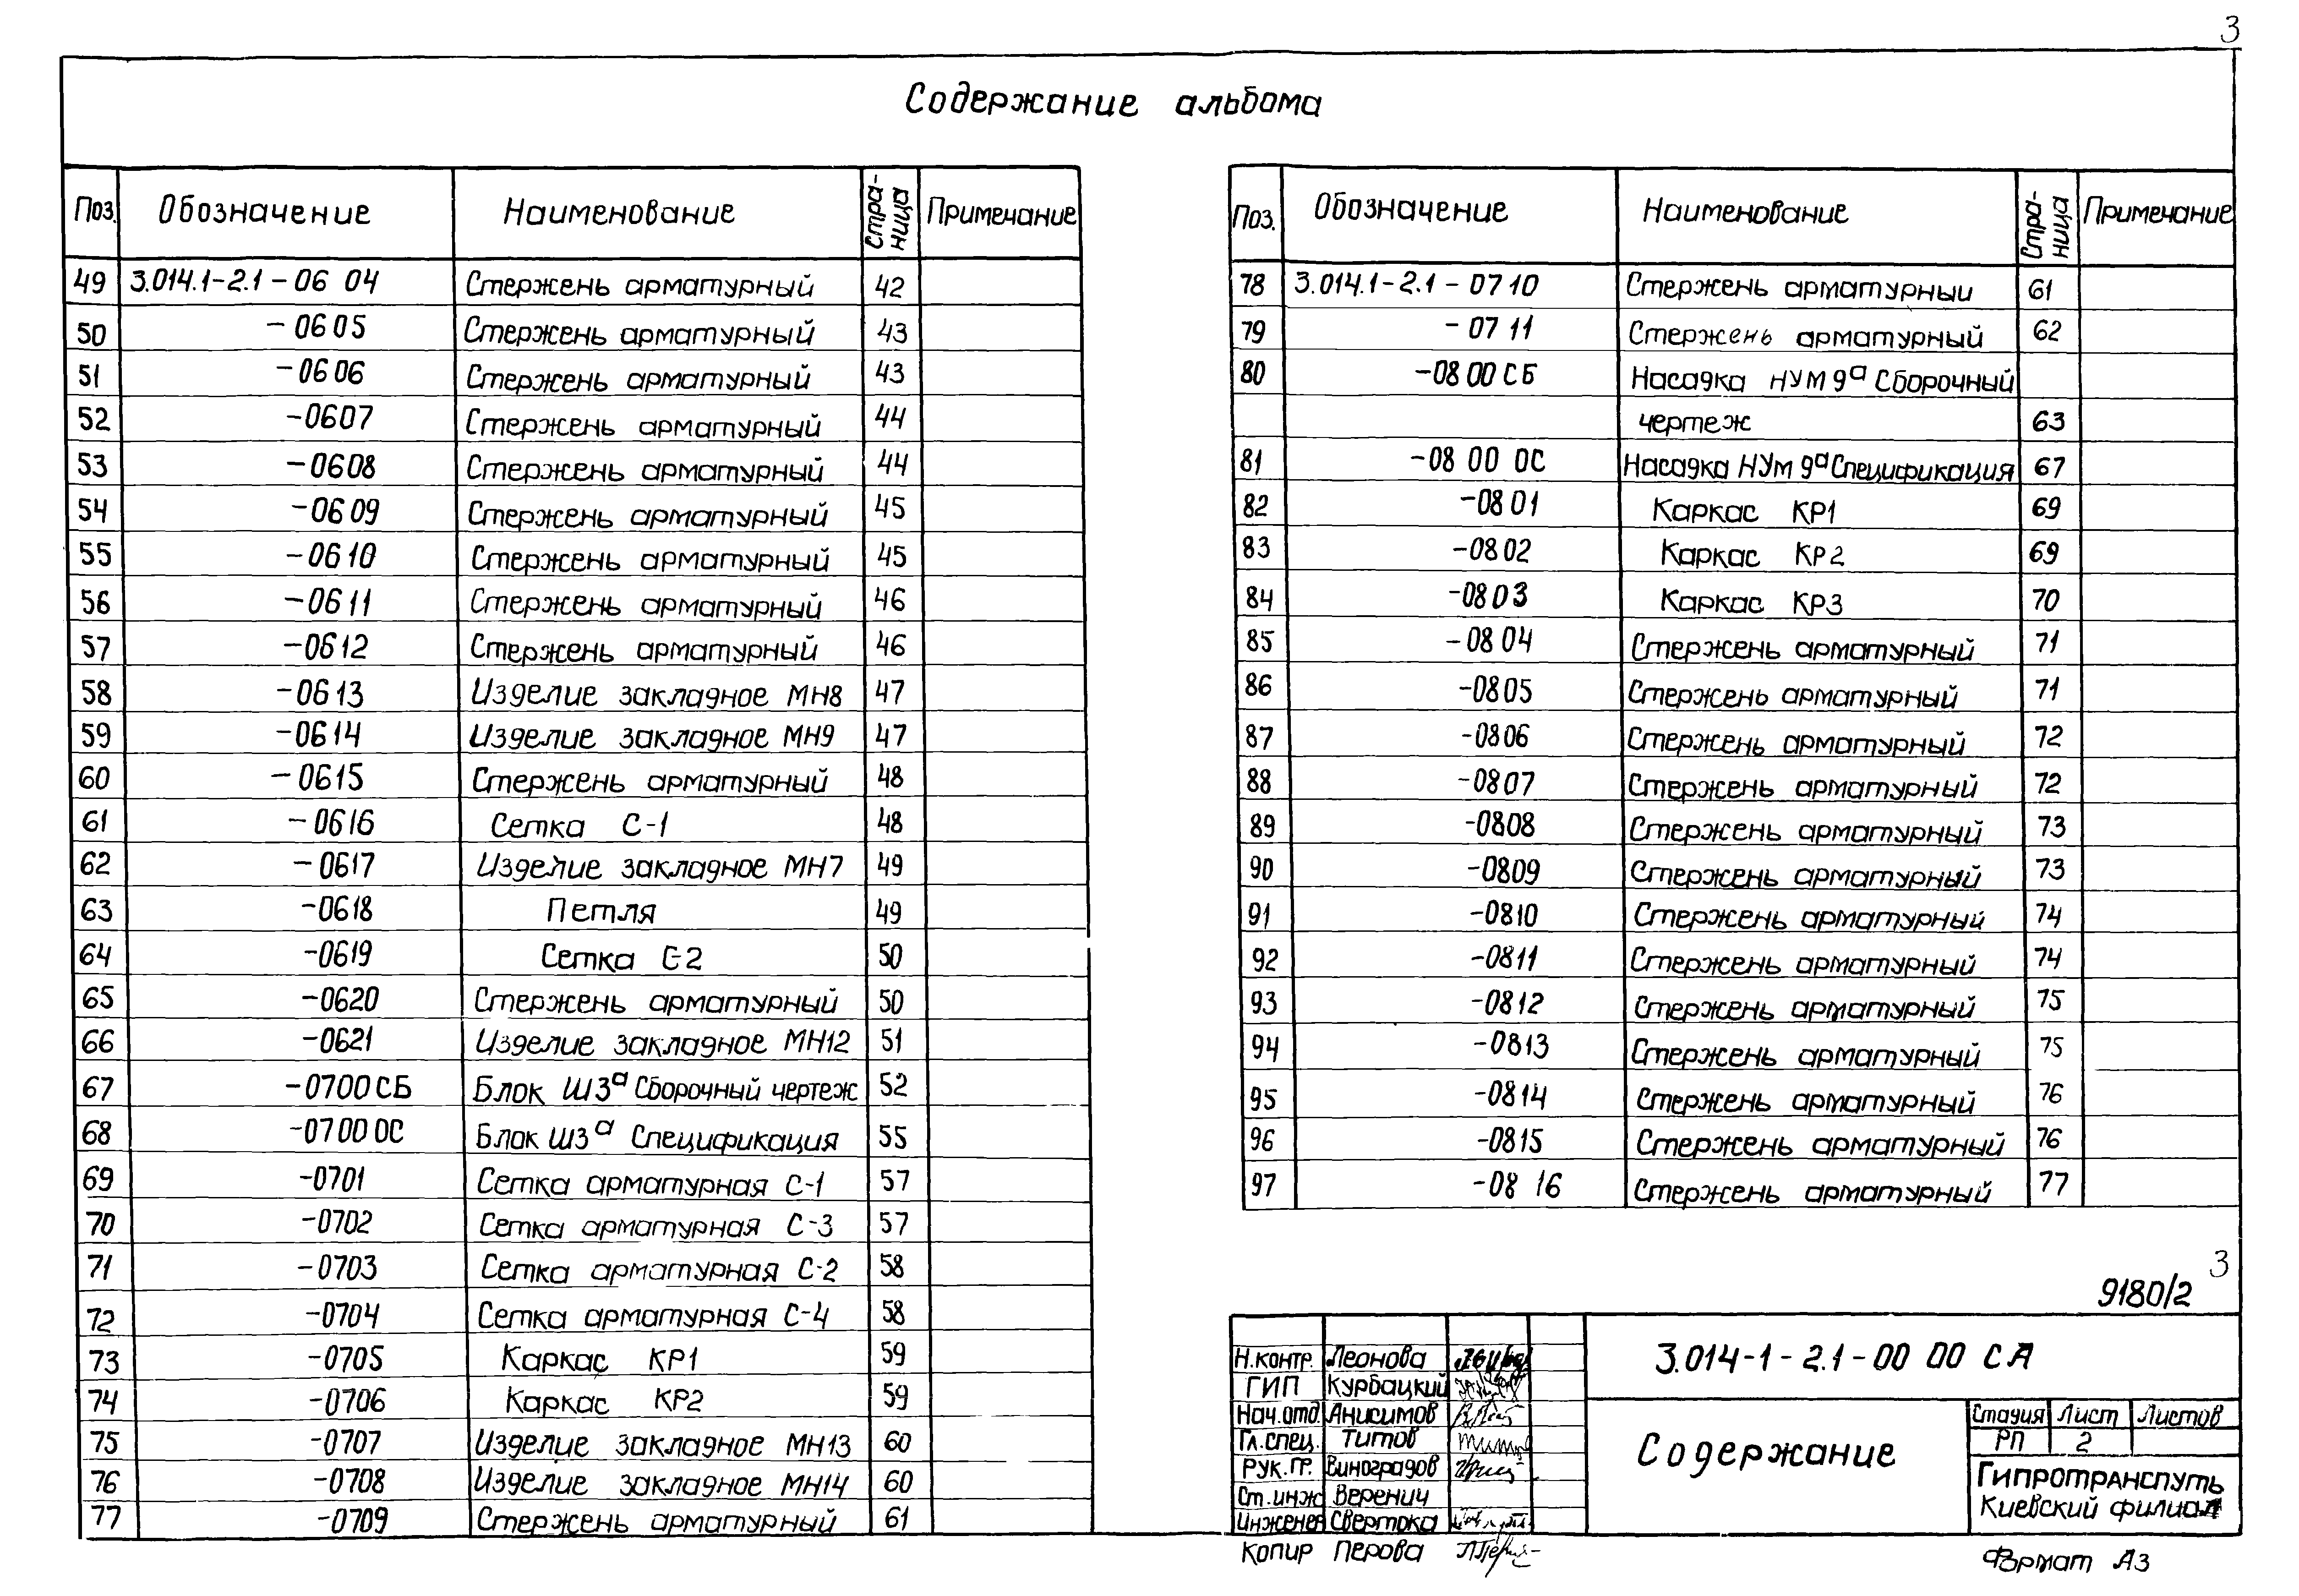 3
Содержание альбома
Поз. Обозначение Наименование Стра-ница Примечание
49 3.014.1-2.1-06 04 Стержень арматурный 42
50 -0605 Стержень арматурный 43
51 -0606 Стержень арматурный 43
52 -0607 Стержень арматурный 44
53 -0608 Стержень арматурный 44
54 -0609 Стержень арматурный 45
55 -0610 Стержень арматурный 45
56 -0611 Стержень арматурный 46
57 -0612 Стержень арматурный 46
58 -0613 Изделие закладное МН8 47
59 -0614 Изделие закладное МН9 47
60 -0615 Стержень арматурный 48
61 -0616 Сетка С-1 48
62 -0617 Изделие закладное МН7 49
63 -0618 Петля 49
64 -0619 Сетка С-2 50
65 -0620 Стержень арматурный 50
66 -0621 Изделие закладное МН12 51
67 -0700 СБ Блок Ш3а Сборочный чертеж 52
68 -0700 ОС Блок Ш3а Спецификация 55
69 -0701 Сетка арматурная С-1 57
70 -0702 Сетка арматурная С-3 57
71 -0703 Сетка арматурная С-2 58
72 -0704 Сетка арматурная С-4 58
73 -0705 Каркас КР1 59
74 -0706 Каркас КР2 59
75 -0707 Изделие закладное МН13 60
76 -0708 Изделие закладное МН14 60
77 -0709 Стержень арматурный 61
Поз. Обозначение Наименование Стра-ница Примечание
78 3.014.1-2.1-0710 Стержень арматурный 61
79 -07 11 Стержень арматурный 62
80 -08 00 СБ Насадка НУМ 9а Сборочный
чертеж 63
81 -08 00 ОС Насадка НУм 9а Спецификация 67
82 -08 01 Каркас КР1 69
83 -0802 Каркас КР2 69
84 -0803 Каркас КР3 70
85 -08 04 Стержень арматурный 71
86 -0805 Стержень арматурный 71
87 -0806 Стержень арматурный 72
88 -0807 Стержень арматурный 72
89 -0808 Стержень арматурный 73
90 -0809 Стержень арматурный 73
91 -0810 Стержень арматурный 74
92 -0811 Стержень арматурный 74
93 -0812 Стержень арматурный 75
94 -0813 Стержень арматурный 75
95 -0814 Стержень арматурный 76
96 -0815 Стержень арматурный 76
97 -08 16 Стержень арматурный 77
3
9180/2
Н.контр. Леонова
ГИП Курбацкий
Нач.отд. Анисимов
Гл.спец. Титов
Рук.гр. Виноградов
Ст.инж Веренич
Инженер Свертока
Копир Перова
3.014-1-2.1-00 00 СА
Содержание
Стадия Лист Листов
РП 2
Гипротранспуть
Киевский филиал
Формат А3